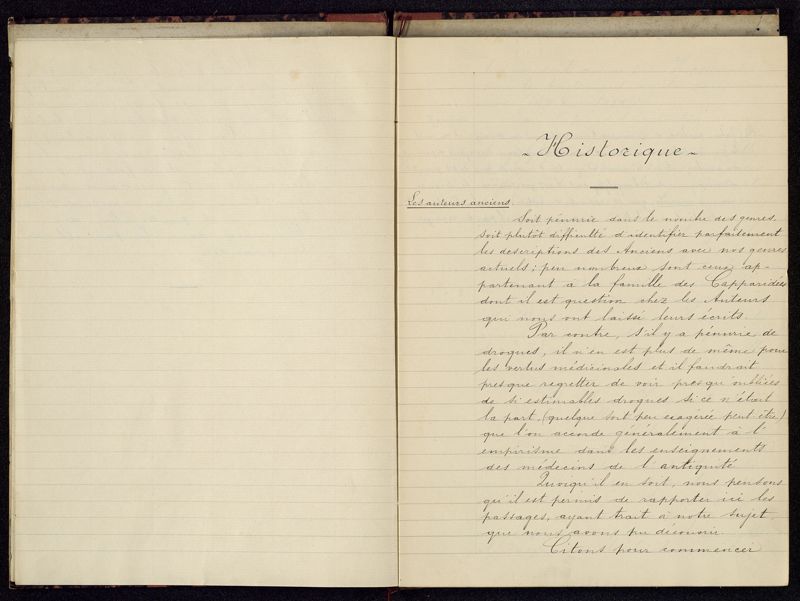 - Historique -
Les auteurs anciens.
Soit pénurie dans le nombre des genres
soit plutôt difficulté d'identifier parfaitement
les descriptions des Anciens avec nos genres
actuels ; peu nombreux sont ceux ap-
partenant à la famille des Capparidées
dont il est question chez les Auteurs
qui nous ont laissé leurs écrits.
Par contre, s'il y a pénurie de
drogues, il n'en est plus de même pour
les vertus médicinales et il faudrait
presque regretter de voir presqu'oubliées
de si estimables drogues si ce n'était
la part (quelque soit peu exagérée peut être)
que l'on accorde généralement à l'
empirisme dans les enseignements
des médecins de l'antiquité
Quoiqu'il en soit, nous pensons
qu'il est permis de rapporter ici les
passages, ayant trait à notre sujet,
que nous avons pu découvrir.
Citons pour commencer